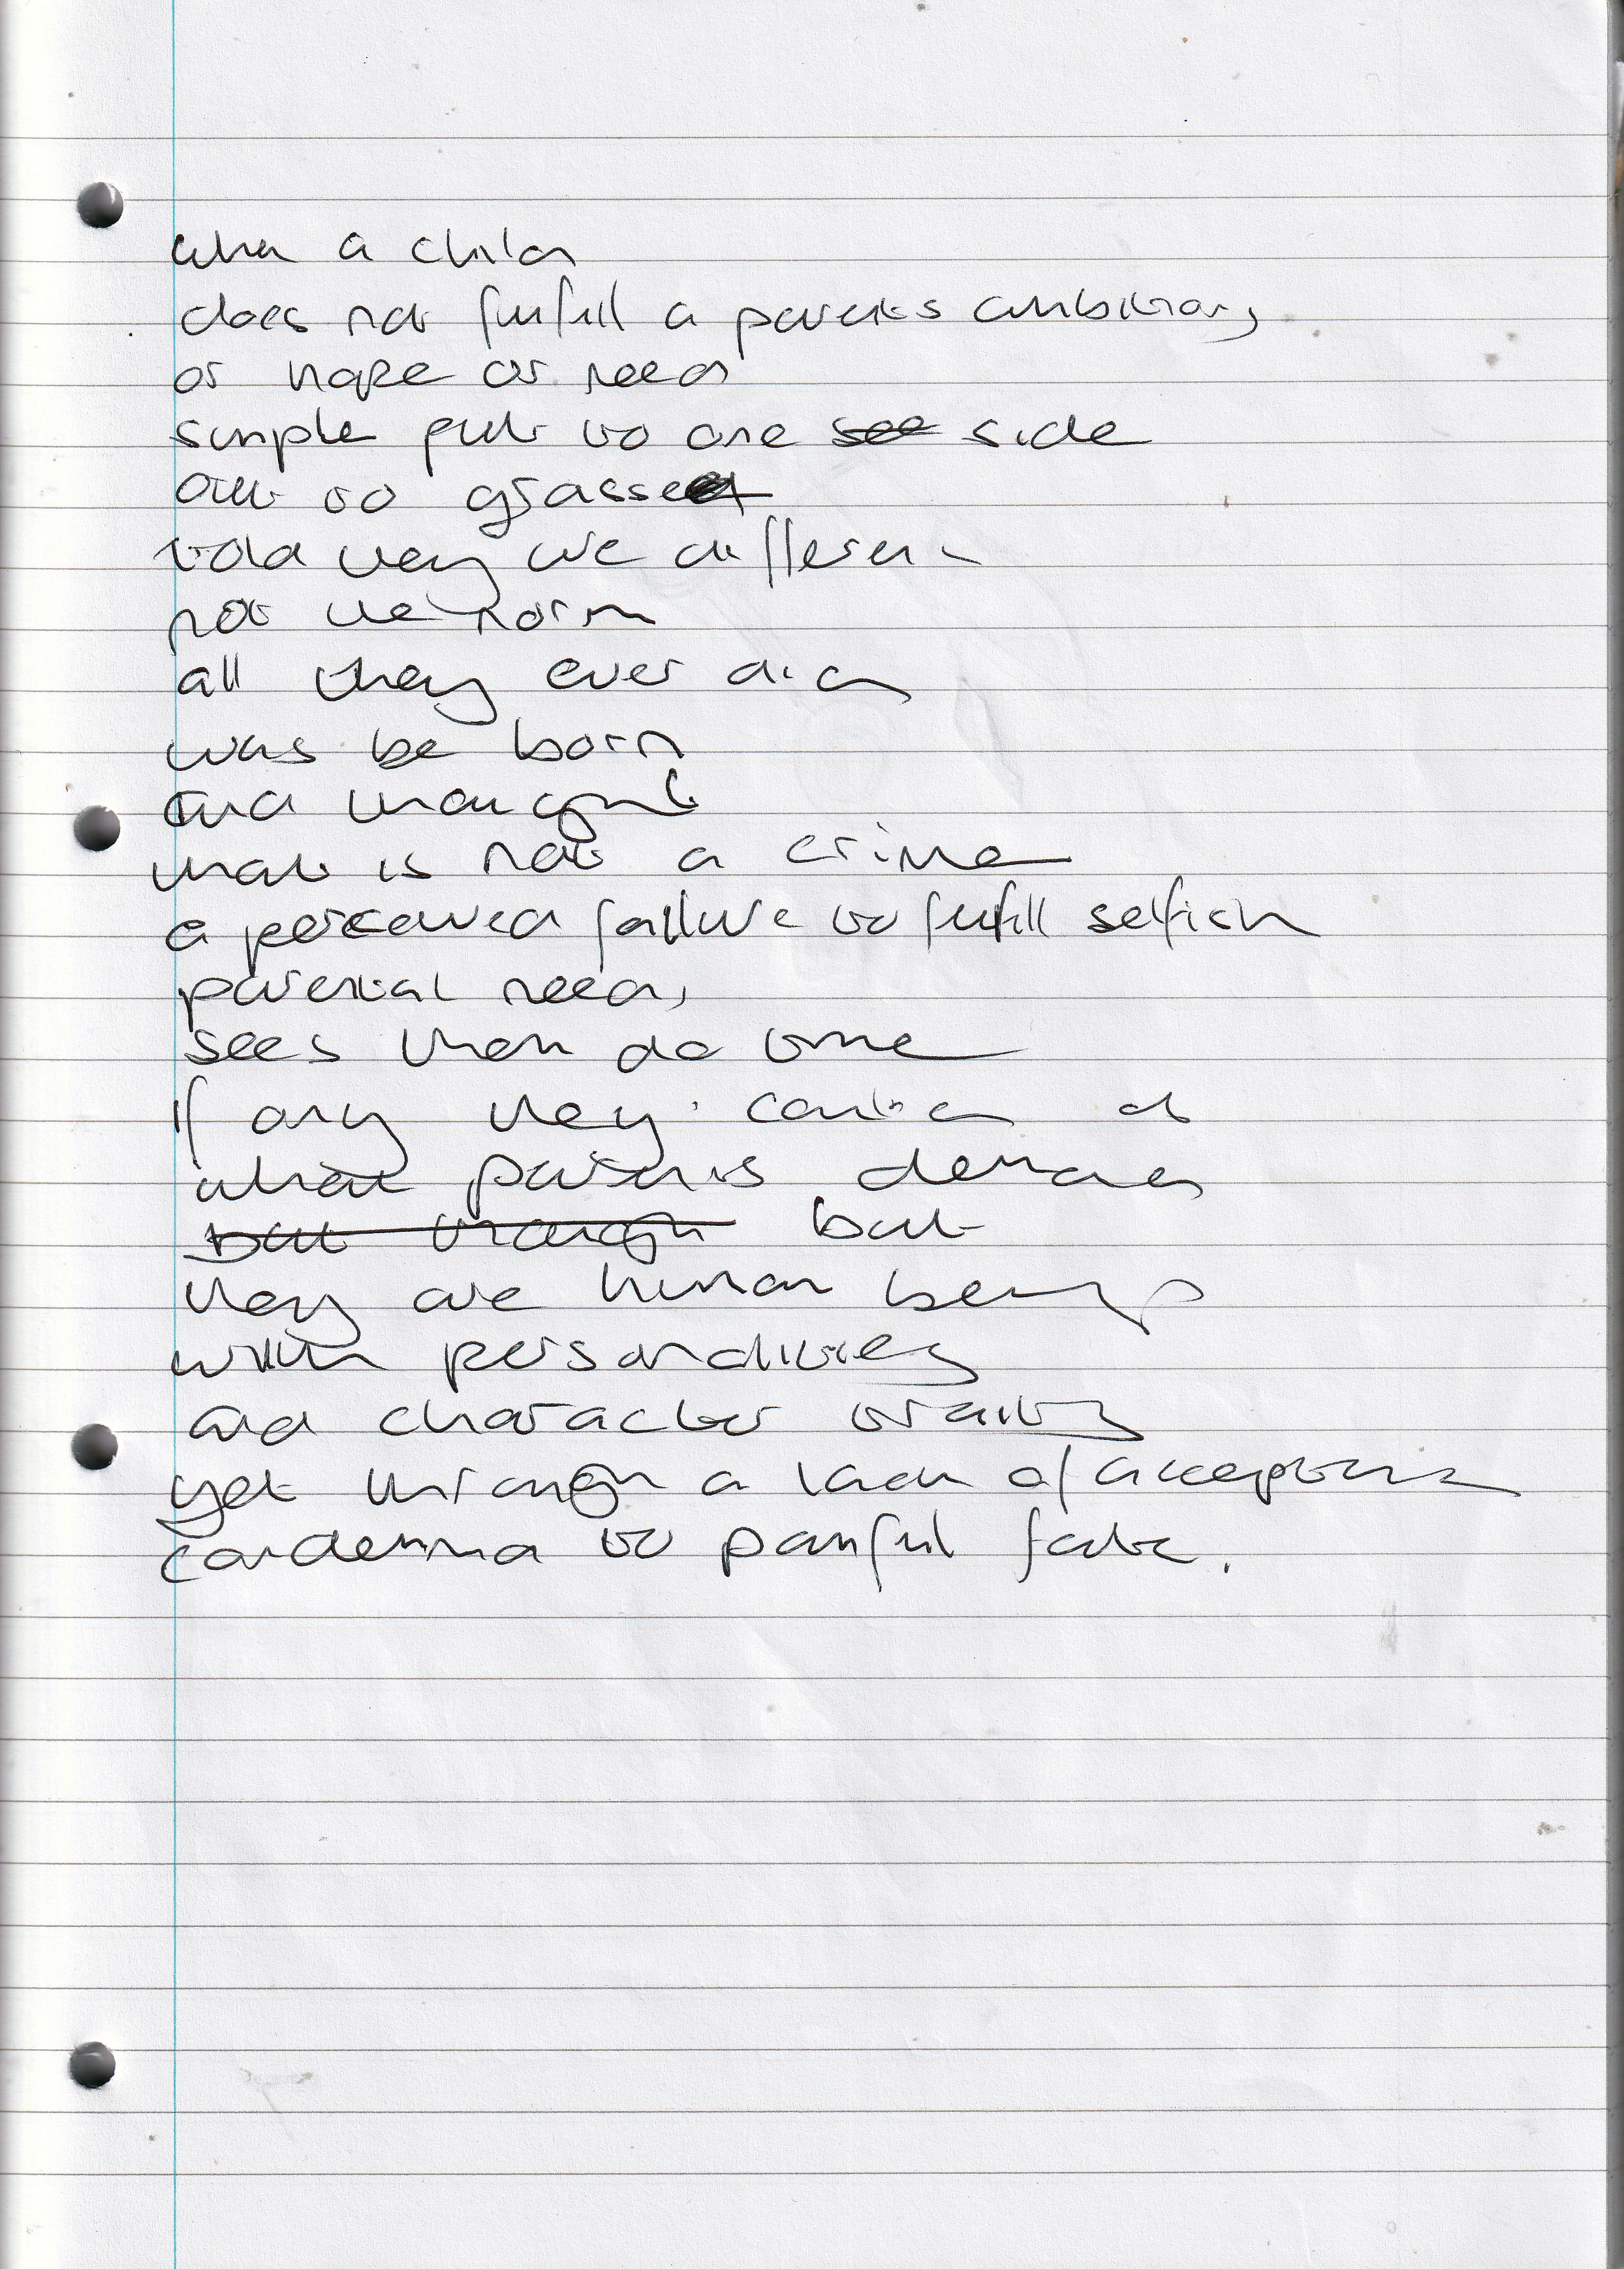 when a child
does not fulfill a parents ambitions
or hope or need
simple put to one see side
out to grass
told they are different
not the norm
all they ever did
was be born
and though
that is not a crime
a perceived failure to fulfill selfish
parental needs
sees them do time
if only they could do
what parents demand
but though but
they are human beings
with personalities
and character traits
yet through a lack of acceptance
condemned to painful fate.